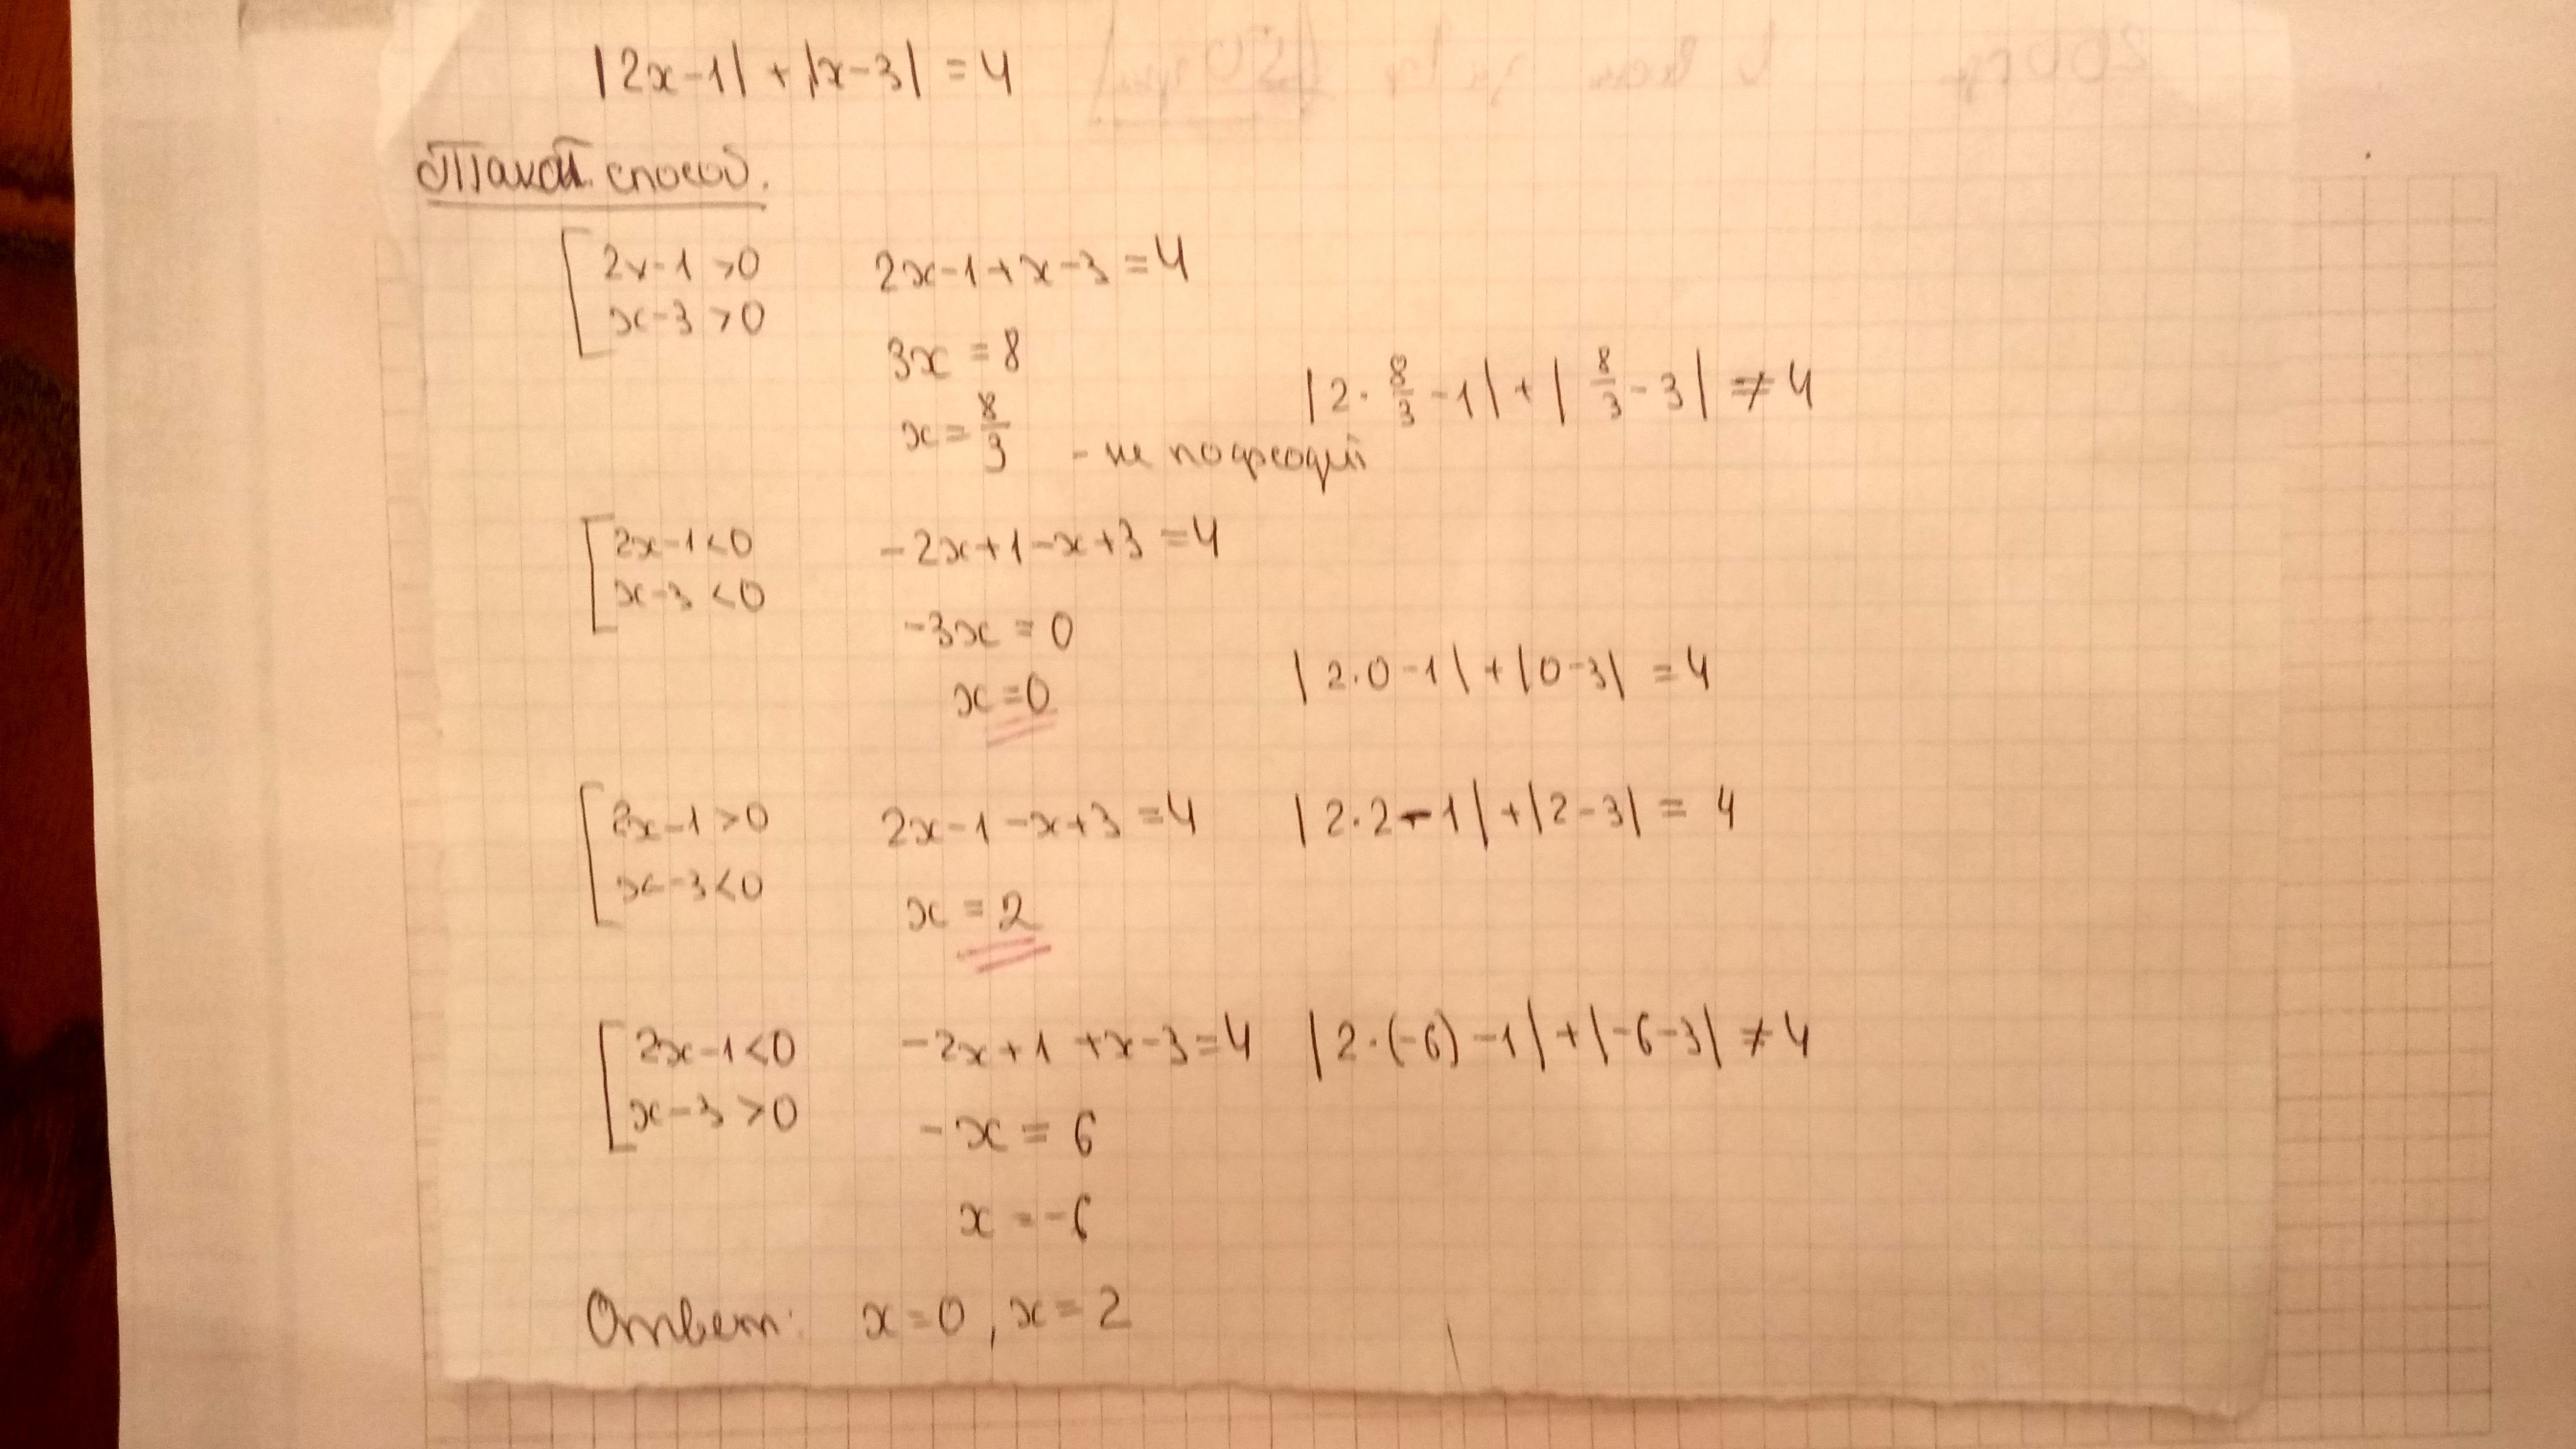 |2x-1| + |x-3| = 4
Такой способ.
2x-1 >0
x-3 >0
2x-1+x-3 = 4
3x = 8
x = 8/3 - не подходит
|2· 8/3 -1| + | 8/3 - 3| ≠ 4
2x-1<0
x-3 <0
-2x+1-x+3 = 4
-3x = 0
x = 0
|2·0-1| + |0-3| = 4
2x-1 >0
x-3<0
2x-1-x+3 = 4
x = 2
|2·2-1| + |2-3| = 4
2x-1<0
x-3 >0
-2x+1+x-3=4
-x = 6
x = -6
|2·(-6)-1| + |-6-3| ≠ 4
Ответ: x=0, x=2